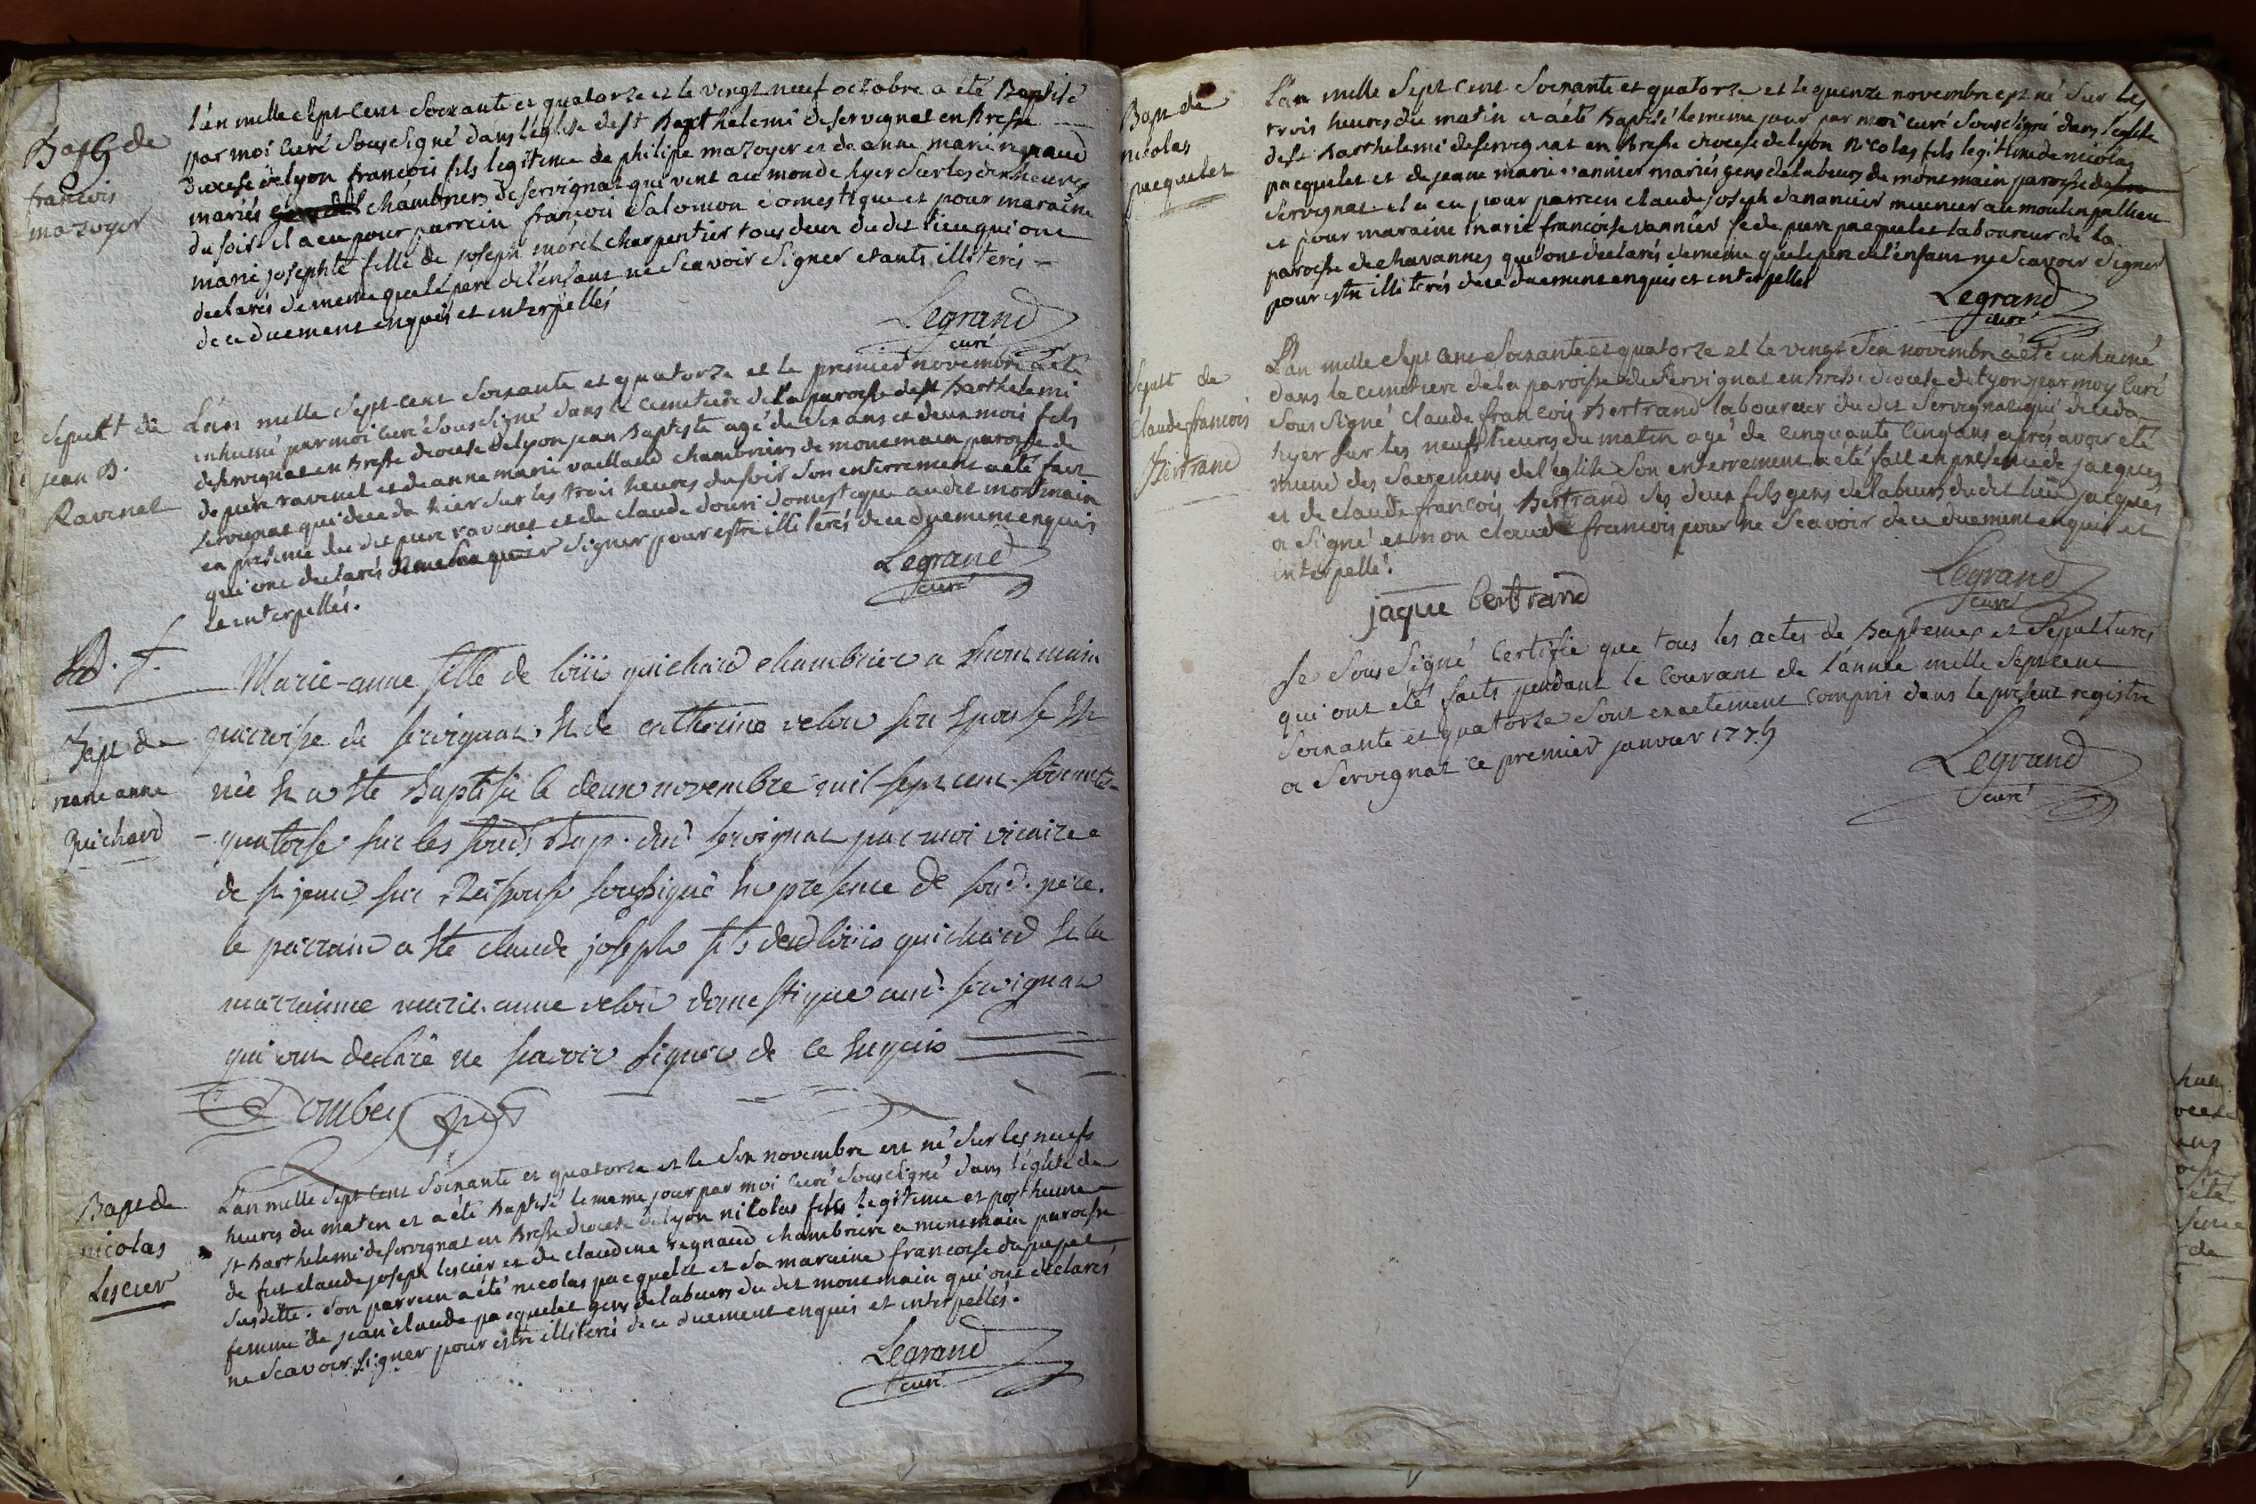 Bapt de
françois
mazoyer
L'an mille sept cent soixante et quatorze et le vingt neuf octobre a été Baptisé
par moi curé sous signé dans l'église de st Barthelemi de servignat en Bresse
diocese de lyon françois fils legitime de philipe mazoyer et de anne marie regnaud
mariés chambriers de servignat qui vint au monde hyer sur les dix heures
du soir il a eu pour parrein françois Salomon domestique et pour maraine
marie josephte fille de joseph morel charpentier tous deux du dit lieu qui ont
declarés de meme que le pere de l'enfant ne scavoir signer etants illiterés
de ce duement enquis et interpellés
Legrand
curé
Sepult de
jean B.
Ravinet
L'an mille sept cent soixante et quatorze et le premier novembre a été
inhumé par moi curé sous signé dans le cimetiere de la paroisse de st Barthelemi
de servignat en Bresse diocese de lyon jean Baptiste agé de six ans et deux mois fils
de pierre ravinet et de anne marie vaillaud chambriers de montmain paroisse de
servignat qui deceda hier sur les trois heures du soir son enterrement a été fait
en presence du dit pierre ravinet et de claude domestique au dit montmain
qui ont declarés ne scavoir signer pour estre illiterés de ce duement enquis
et interpellés.
Legrand
curé
Bapt de
marie anne
Guichard
Marie-anne fille de loüis guichard chambrier a montmain
parroisse de servignat, et de catherine velou son epouse est
née et a ete Baptisée le deux novembre mil sept cent soixante
quatorse sur les fonds Bap. dud servignat par moi vicaire
de st jean sur Reissouse soussigné en presence de sond. pere.
le parrain a ete claude joseph fils dud loüis guichard et la
marrainne marie-anne velou domestique aud. servignat
qui ont declaré ne scavoir signer de ce enquis
Bapt de
nicolas
Lescier
L'an mille sept cent soixante et quatorze et le six novembre est né sur les neufs
heures du matin et a été Baptisé le meme jour par moi curé sous signé dans l'église de
st Barthelemi de servignat en Bresse diocese de lyon nicolas fils legitime et posthume
de fut claude joseph lescier et de claudine regnaud chambriere a montmain paroisse
susditte. Son parrein a été nicolas pacquelet et sa maraine francoise dupupet
femme de jean claude pacquelet gens de labeurs du dit montmain qui ont declarés
ne scavoir signer pour estre illiterés de ce duement enquis et interpellés.
Legrand
curé
Bapt de
nicolas
pacquelet
L'an mille sept cent soixante et quatorze et le quinze novembre est né sur les
trois heures du matin et a été Baptisé le meme jour par moi curé sous signé dans l'eglise
de st Barthelemi de servignat en Bresse diocese de lyon Nicolas fils legitime de nicolas
pacquelet et de jeane marie vannier mariés gens de labeurs de montmain paroisse de
servignat il a eu pour parrein claude joseph danancier meunier au moulin
et pour maraine marie francoise vannier fe de pierre pacquelet laboureur de la
paroisse de chavannes qui ont declarés de meme que le pere de l'enfant ne scavoir signer
pour estre illiterés de ce duement enquis et interpellés
Legrand
curé
Sepult de
Claude francois
Bertrand
L'an mille sept cent soixante et quatorze et le vingt six novembre a été inhumé
dans le cimetiere de la paroisse de servignat en Bresse diocese de lyon par moy curé
sous signé claude francois Bertrand laboureur du dit servignat qui deceda
hyer sur les neufs heures du matin agé de cinquante cinq ans aprés avoir eté
muni des sacremens de l'eglise son enterrement a été fait en presence de jacques
et de claude francois Bertrand ses deux fils gens de labeurs du dit lieu jacques
a signé et non claude francois pour ne scavoir de ce duement enquis et
interpellé.
jaque bertrand
Legrand
curé
Je sous signé certifie que tous les actes de Baptemes et sepultures
qui ont été faits pendant le courant de l'année mille sept cent
soixante et quatorze sont exactement compris dans le present registre
a servignat ce premier janvier 1775
Legrand
curé